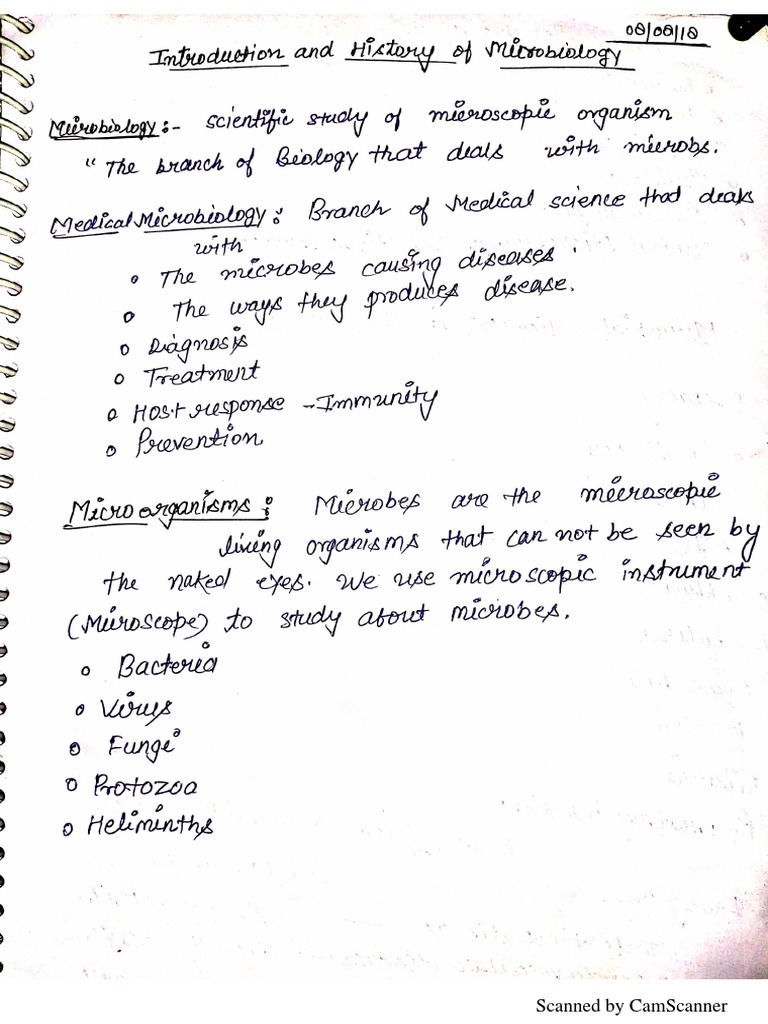 08/08/18
Introduction and History of Microbiology
Microbiology:- scientific study of microscopic organism
" The branch of Biology that deals with microbs.
Medical Microbiology: Branch of Medical science that deals
with
o The microbes causing diseases.
o The ways they produces disease.
o Diagnosis
o Treatment
o Host response - Immunity
o Prevention
Microorganisms: Microbes are the microscopic
living organisms that can not be seen by
the naked eyes. We use microscopic instrument
(Microscope) to study about microbes.
o Bacteria
o Virus
o Fungi
o Protozoa
o Heliminths
Scanned by CamScanner